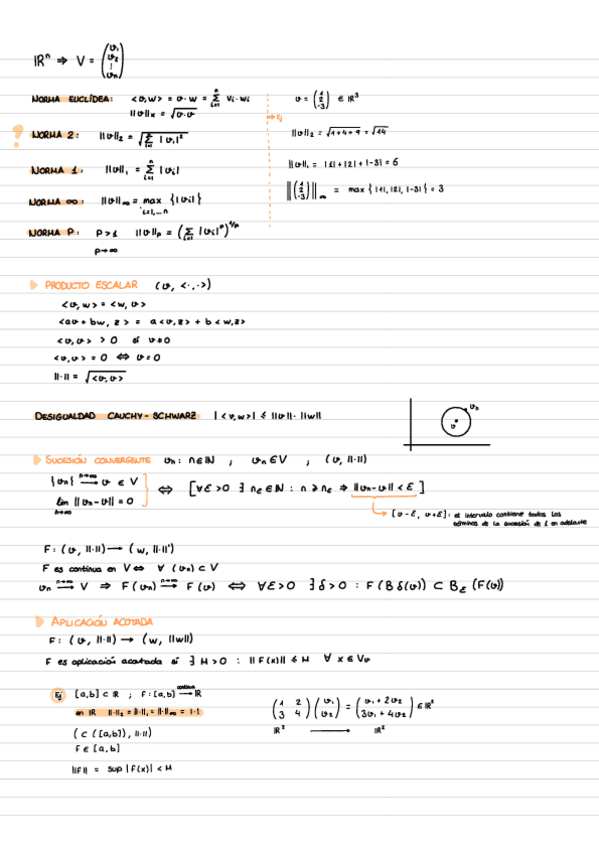 IRⁿ ⇒ V = (v₁ v₂ | vₙ)
NORMA EUCLÍDEA: <v,w> = v·w = Σⁿᵢ₌₁ Vi·wi
||v||ₓ = √v·v
v = (1 2 -3) ∈ IR³
→ Ej
? NORMA 2: ||v||₂ = √Σⁿᵢ₌₁ |vi|²
||v||₂ = √1+4+9 = √14
NORMA 1: ||v||₁ = Σⁿᵢ₌₁ |vi|
||v||₁ = |1|+|2|+|-3| = 6
NORMA ∞: ||v||∞ = max {|vi|}
i=1,...n
||(1 2 -3)||∞ = max {|1|,|2|,|-3|} = 3
NORMA P: P>1 ||v||p = (Σᵢ₌₁ |vi|ᵖ)^1/p
p→∞
PRODUCTO ESCALAR (v, <·,·>)
<v,w> = <w,v>
<av + bw, z> = a<v,z> + b<w,z>
<v,v> > 0 si v≠0
<v,v> = 0 ⇔ v=0
||·|| = √<v,v>
DESIGUALDAD CAUCHY-SCHWARZ |<v,w>| ≤ ||v||·||w||
vₙ
v
SUCESIÓN CONVERGENTE vₙ: n∈IN ; vₙ∈V ; (v, ||·||)
{vₙ} n→∞ → v ∈ V
lim ||vₙ-v|| = 0
n→∞
⇔ [∀ε>0 ∃ nε∈IN : n ≥ nε ⇒ ||vₙ-v|| < ε]
→ [v-ε, v+ε]: el intervalo contiene todos los
términos de la sucesión de 1 en adelante
F: (v, ||·||) → (w, ||·||')
F es continua en V ⇔ ∀ (vₙ) ⊂ V
vₙ n→∞ → V ⇒ F(vₙ) n→∞ → F(v) ⇔ ∀ε>0 ∃δ>0 : F(Bδ(v)) ⊂ Bε(F(v))
APLICACIÓN ACOTADA
F: (v, ||·||) → (w, ||w||)
F es aplicación acotada si ∃ M>0 : ||F(x)|| ≤ M ∀ x∈Vv
Ej [a,b] ⊂ IR ; F:[a,b] continua → IR
en IR ||·||₂ = ||·||₁ = ||·||∞ = |·|
(C([a,b]), ||·||)
F ∈ [a,b]
||F|| = sup |F(x)| < M
(1 2 3 4)(v₁ v₂) = (v₁ + 2v₂ 3v₁ + 4v₂) ∈ IR²
IR² → IR²